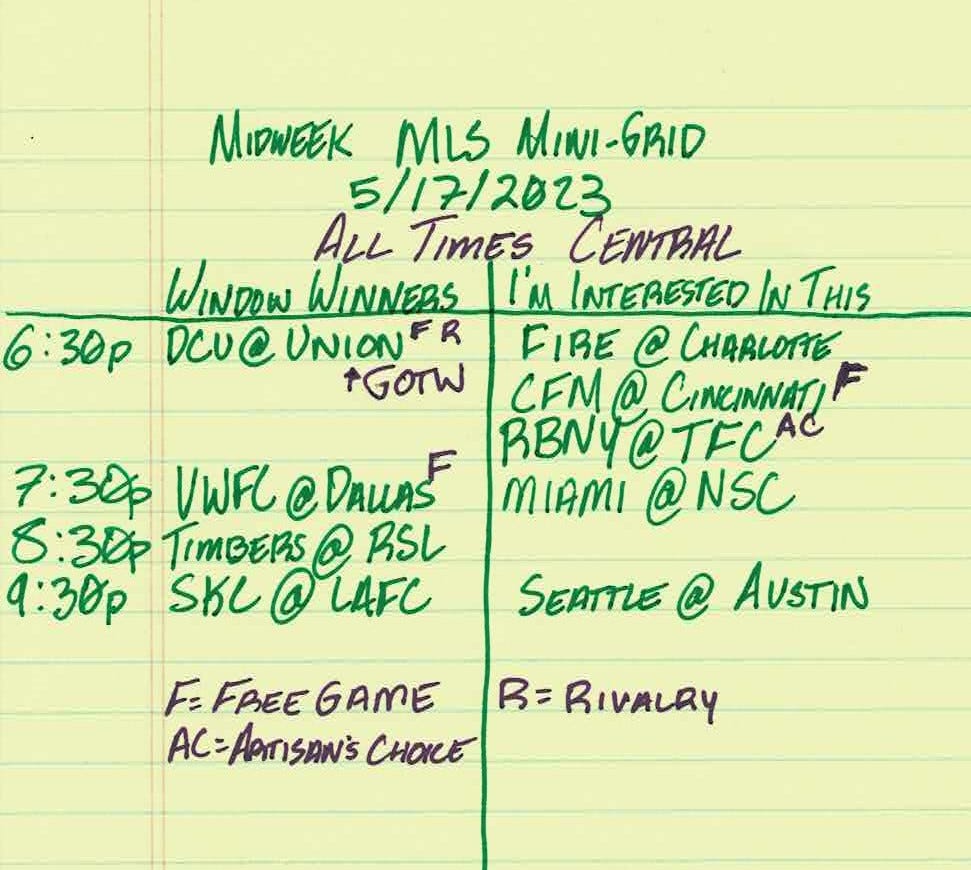 MIDWEEK MLS MINI-GRID
5/17/2023
ALL TIMES CENTRAL
WINDOW WINNERS I'M INTERESTED IN THIS
6:30p DCU @ UNION F R FIRE @ CHARLOTTE
↑GOTW CFM @ CINCINNATI F
RBNY @ TFC AC
7:30p VWFC @ DALLAS F MIAMI @ NSC
8:30p TIMBERS @ RSL
9:30p SKC @ LAFC SEATTLE @ AUSTIN
F= FREE GAME R= RIVALRY
AC=ARTISAN'S CHOICE